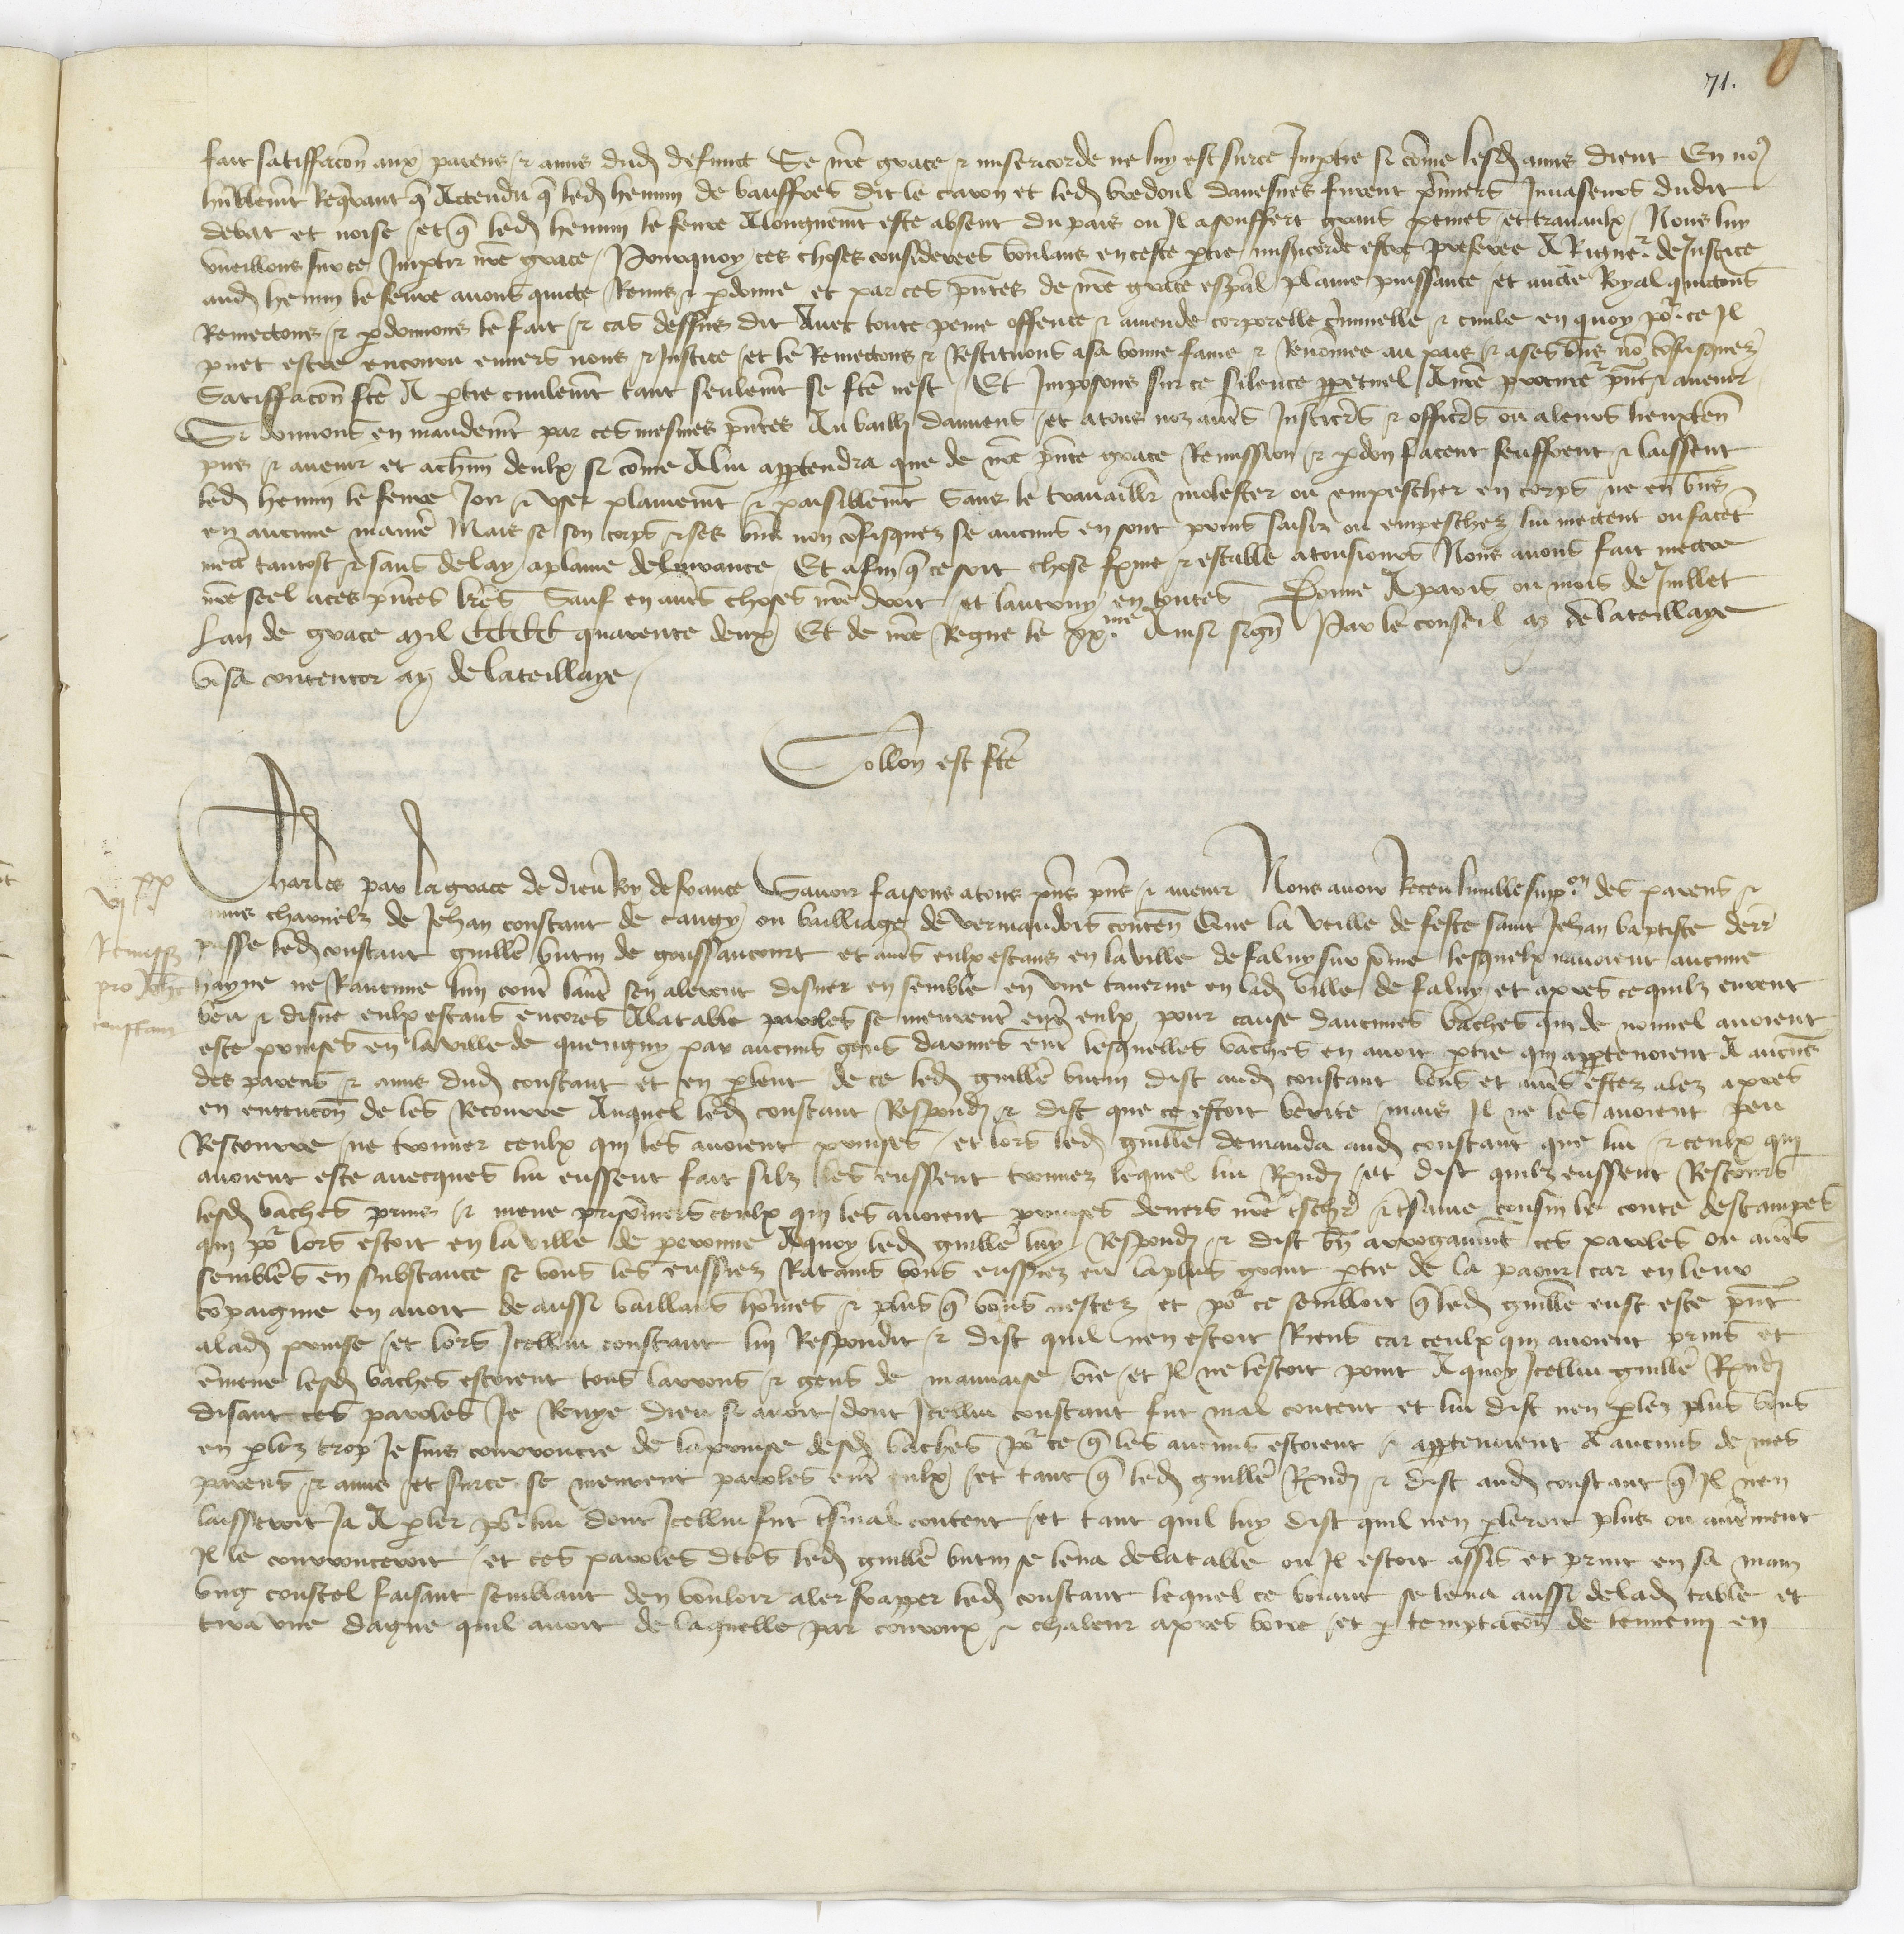 71.
fait satiffacōn aux parens & amis dud defunct Se nrē grace & misericorde ne luy est surce Impartie si cōme lesd amis dient En no9
humblemt Requerant q̄ Actendu q̄ led henin de bauffres dit le caron et led bredoul davesnes furent premiers Invaseurs dudit
debat et noise et q̄ led henin le fevre A longuemt este absent du pais ou Il a souffert grans peines et travaulx Nous luy
vueillons sur ce Impartir nrē grace Pourquoy ces choses considerees voulans en ceste partie misericorde estre preferee A Rigueur de Justice
aud henin le fevre avons quicte Remis & pardonne et par ces pñtes de nrē grace especial plaine puissance et aucte Royal quictons
Remectons & pardonnons le fait & cas dessus dit Avec toute peine offence & amende corporelle criminelle & civile en quoy por ce Il
puet estre encouru envers nous & Justice et le Remectons & Restituons a sa bonne fame & Renōmee au pais & a ses biens nō cōfisquez
Satiffacōn fte A partie civilemt tant seulemt se fte nest Et Imposons sur ce silence perpetuel A nrē procureur pñt & avenir
Si donnons en mandemt par ces mesmes pñtes Au bailli damiens et a tous noz autres Justiciers & officiers ou a leurs lieuxten
pns & avenir et a chūn deulx si cōme A lui appartendra que de nrē pñte grace Remission & pardon facent seuffrent & laissent
led henin le fevre Joir & user plainemt & paisiblemt Sans le travaillier molester ou empescher en corps ne en biens
en aucune maniē Mais se son corps & ses biens non cōfisquez se aucuns en sont prins saisiz ou empeschez lui mectent ou facēt
mectē tantost & sans delay a plaine delivrance Et afin q̄ ce soit chose ferme & estable a tousiours Nous avons fait mectre
nrē seel a ces pñtes lrēs Sauf en autres choses nrē droit et lautruy en toutes Donne A paris ou mois de Juillet
Lan de grace mil CCCC quarente deux Et de nrē Regne le xxme Ainsi signe Par le conseil de la teillaye
Visa contentor de la teillaye
Collon est fte
Charles par la grace de dieu Roy de france Savoir faisons a tous pñs pñs & avenir Nous avoir Receu humble suppon des parens &
amis charnelz de Jehan constant de ou bailliage de vermandois conten Que la veille de feste saint Jehan baptiste derr
passe led constant guillē butin de goussancourt et autres eulx estans en la ville de faluy sur sōme lesquelx navoient aucune
hayne ne Rancune lun contre lautre sen alerent disner en semble en une taverne en lad ville de faluy et apres ce quilz eurent
beu & disne eulx estans encores A la table paroles se meurent entre eulx pour cause daucunes vaches qui de nouvel avoient
este prinses en la ville de quengny par aucuns gens darmes entre lesquelles vaches en avoit partie qui appartenoient A aucuns
des parens & amis dud constant et en parlant de ce led guillē butin dist aud constant vous et autres estez alez apres
en entencōn de les Recourre Auquel led constant Respondi & dist que ce estoit verite mais Il ne les avoient peu
Rescourre ne trouver ceulx qui les avoient prinses et lors led guillē demanda aud constant que lui & ceulx qui
avoient este avecques lui eussent fait silz les eussent trouvez lequel lui Rndi et dist quilz eussent Rescours
lesd vaches prins & mene prisonniers ceulx qui les avoient prinses devers nrē treschr & tresame cousin le conte destampes
qui por lors estoit en la ville de peronne A quoy led guillē luy Respondi & dist bn arrogaument ces paroles ou autres
semblēs en substance se vous les eussiez Ratains vous eussiez eu la plus grant partie de la paour car en leur
cōpaignie en avoit de aussi vaillans hōmes & plus q̄ vous nestez et por ce sembloit q̄ led guillē eust este pñt
a lad prinse et lors Icellui constant lui Respondit & dist quil nen estoit Riens car ceulx qui avoient prins et
emmene lesd vaches estoient tous larrons & gens de mauvaise vie et Il ne lestoit point A quoy Icellui guillē Rndi
disant ces paroles Je Renye dieu si avoit dont Icellui constant fut mal content et lui dist nen parlez plus vous
en parlez trop Je suis courroucie de la prinse desd vaches por ce q̄ les aucuns estoient & appartenoient A aucuns de mes
parens & amis et surce se meurent paroles entre eulx et tant q̄ led guillē Rndi & dist aud constant q̄ Il nen
laisseroit Ja A parler por lui dont Icellui fut tresmal content et tant quil luy dist quil nen parleroit plus ou autrement
Il le courrouceroit et ces paroles dtes led guillē butin se leva de la table ou Il estoit assis et print en sa main
ung coustel faisant semblant den vouloir aler frapper led constant lequel ce voiant se leva aussi de lad table et
tira une dague quil avoit de laquelle par courroux & chaleur apres boire et par temptacōn de lennemi en
vi xx
Remiss
pro Johe
constant